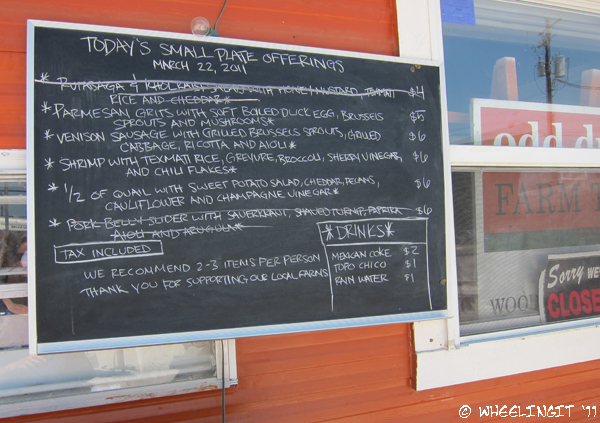 TODAY'S SMALL PLATE OFFERINGS
MARCH 22, 2011
* RUTABAGA & KHOLRABI WITH HONEY MUSTARD, TEXMATI $4
RICE AND CHEDDAR*
* PARMESAN GRITS WITH SOFT BOILED DUCK EGG, BRUSSELS $5
SPROUTS, AND MUSHROOMS*
* VENISON SAUSAGE WITH GRILLED BRUSSELS SPROUTS, GRILLED $6
CABBAGE, RICOTTA AND AIOLI*
* SHRIMP WITH TEXMATI RICE, GREVURE, BROCCOLI, SHERRY VINEGAR, $6
AND CHILI FLAKES*
* 1/2 OF QUAIL WITH SWEET POTATO SALAD, CHEDDAR, PECANS, $6
CAULIFLOWER AND CHAMPAGNE VINEGAR*
* PORK BELLY SLIDER WITH SAUERKRAUT, SHAVED TURNIP, PAPRIKA $6
AIOLI AND ARUGULA*
TAX INCLUDED
WE RECOMMEND 2-3 ITEMS PER PERSON
THANK YOU FOR SUPPORTING OUR LOCAL FARMS
*DRINKS*
MEXICAN COKE $2
TOPO CHICO $1
RAIN WATER $1
odd d
FARM
WOO
Sorry we
CLOSE
© WHEELINGIT '11